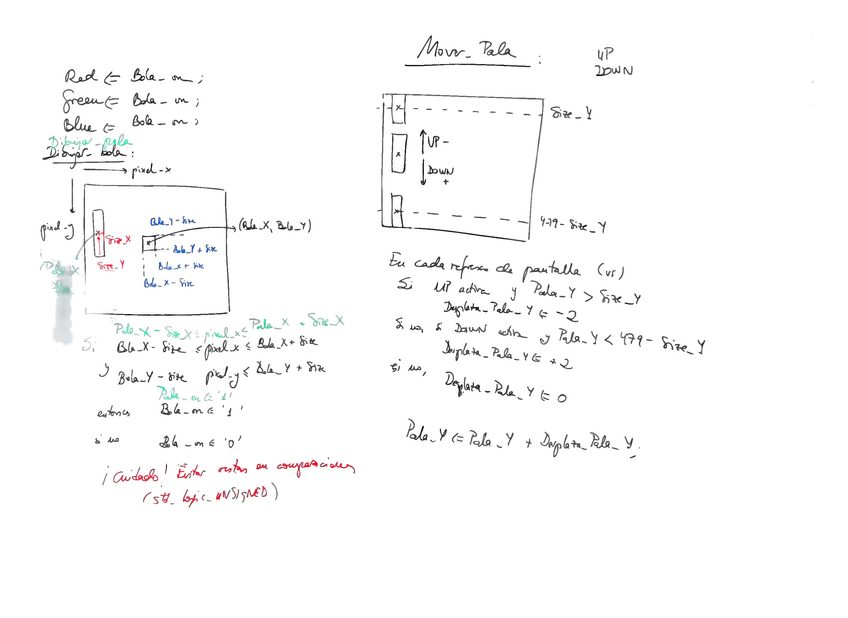 Red <= Bola_on;
Green <= Bola_on;
Blue <= Bola_on;
Dibujar_pala
Dibujar_bola:
pixel-x
pixel-y
Size_X
Size_Y
Bola_Y-Size
(Bola_X, Bola_Y)
Bola_Y + Size
Bola_X + Size
Bola_X - Size
Pala_X - Size_X ≤ pixel_x ≤ Pala_X + Size_X
Si Bola_X - Size ≤ pixel_x ≤ Bola_X + Size
y Bola_Y - Size pixel-y ≤ Bola_Y + Size
Pala_on <= '1'
entonces Bola_on <= '1'
si no Bola_on <= '0'
¡Cuidado! Evitar restas en comparaciones
(std_logic_UNSIGNED)
Mover_Pala :
UP
DOWN
Size_Y
UP -
DOWN
+
479-Size_Y
En cada refresco de pantalla (vs)
Si UP activa y Pala_Y > Size_Y
Desplaza_Pala_Y <= -2
Si no, si DOWN activa y Pala_Y < 479-Size_Y
Desplaza_Pala_Y <= +2
si no,
Desplaza_Pala_Y <= 0
Pala_Y <= Pala_Y + Desplaza_Pala_Y;